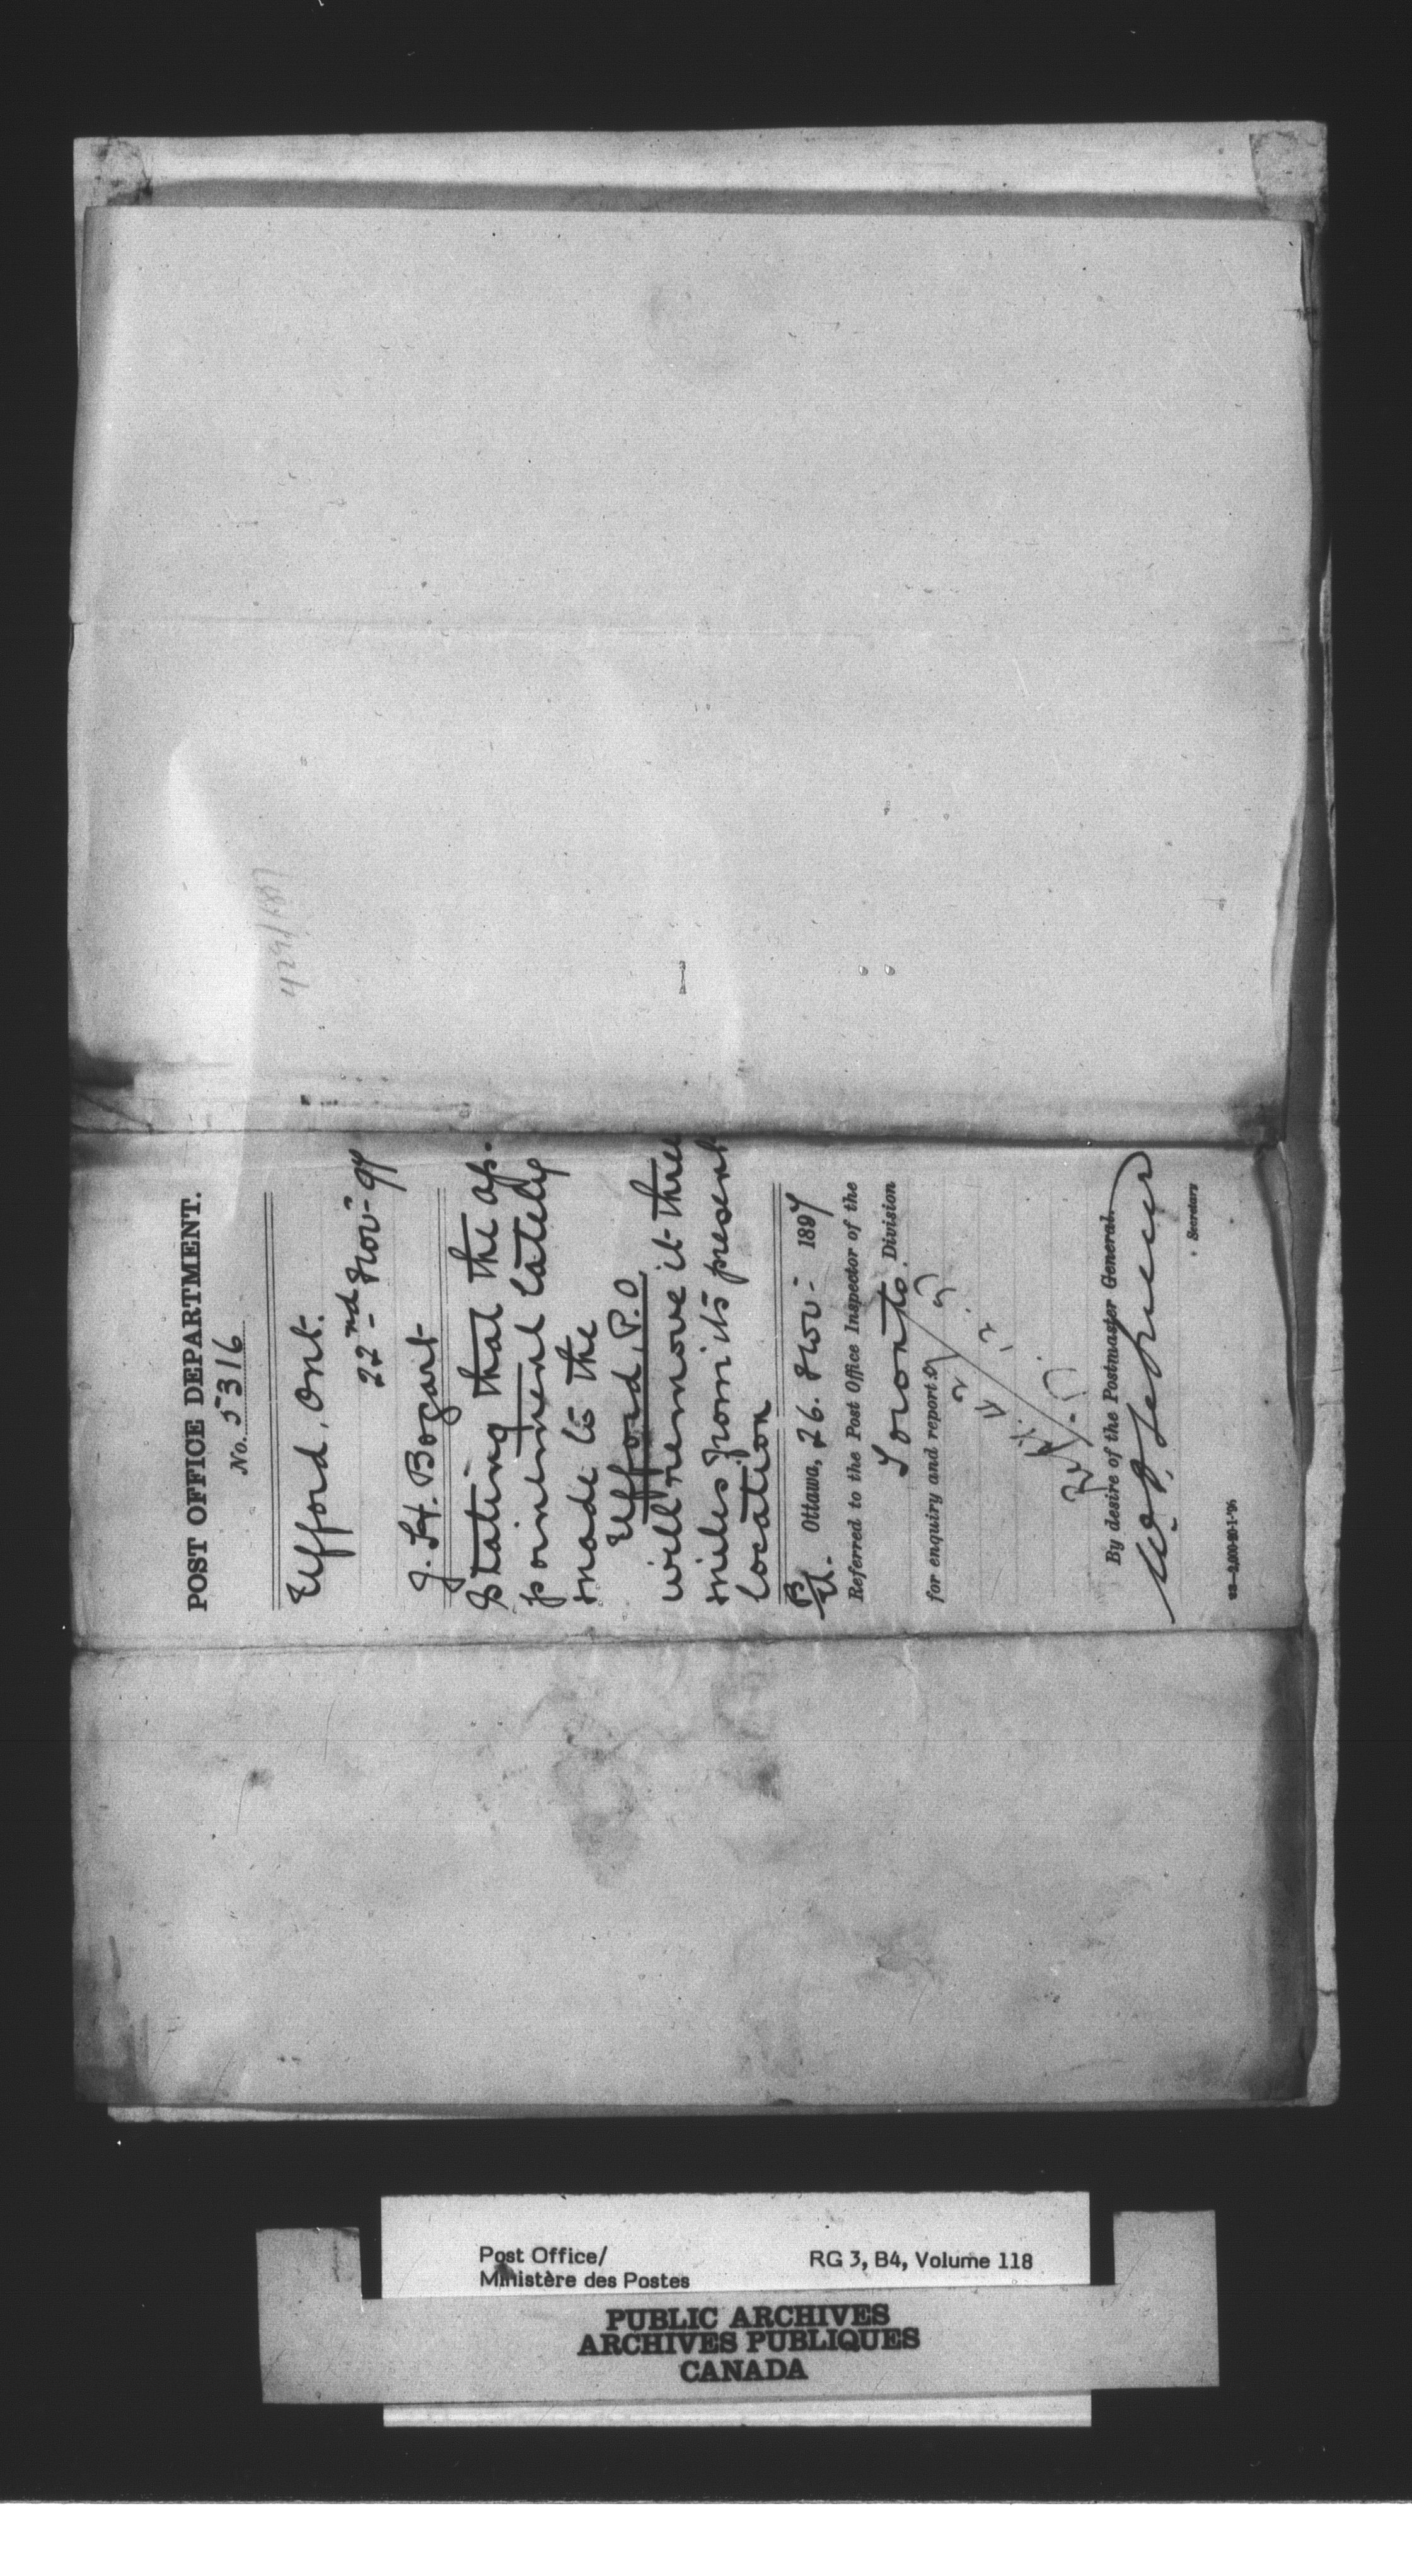 POST OFFICE DEPARTMENT.
No. 5316
Efford, Ont.
22nd Nov- 97
J. H. Bogart
Stating that the ap-
pointment lately
made to the
Efford, P.O
will remove it three
miles from its present
location
Ottawa, 26. Nov- 1897
Referred to the Post Office Inspector of the
Toronto Division
for enquiry and report.
By desire of the Postmaster General.
Secretary
Post Office/
Ministère des Postes
RG 3, B4, Volume 118
PUBLIC ARCHIVES
ARCHIVES PUBLIQUES
CANADA